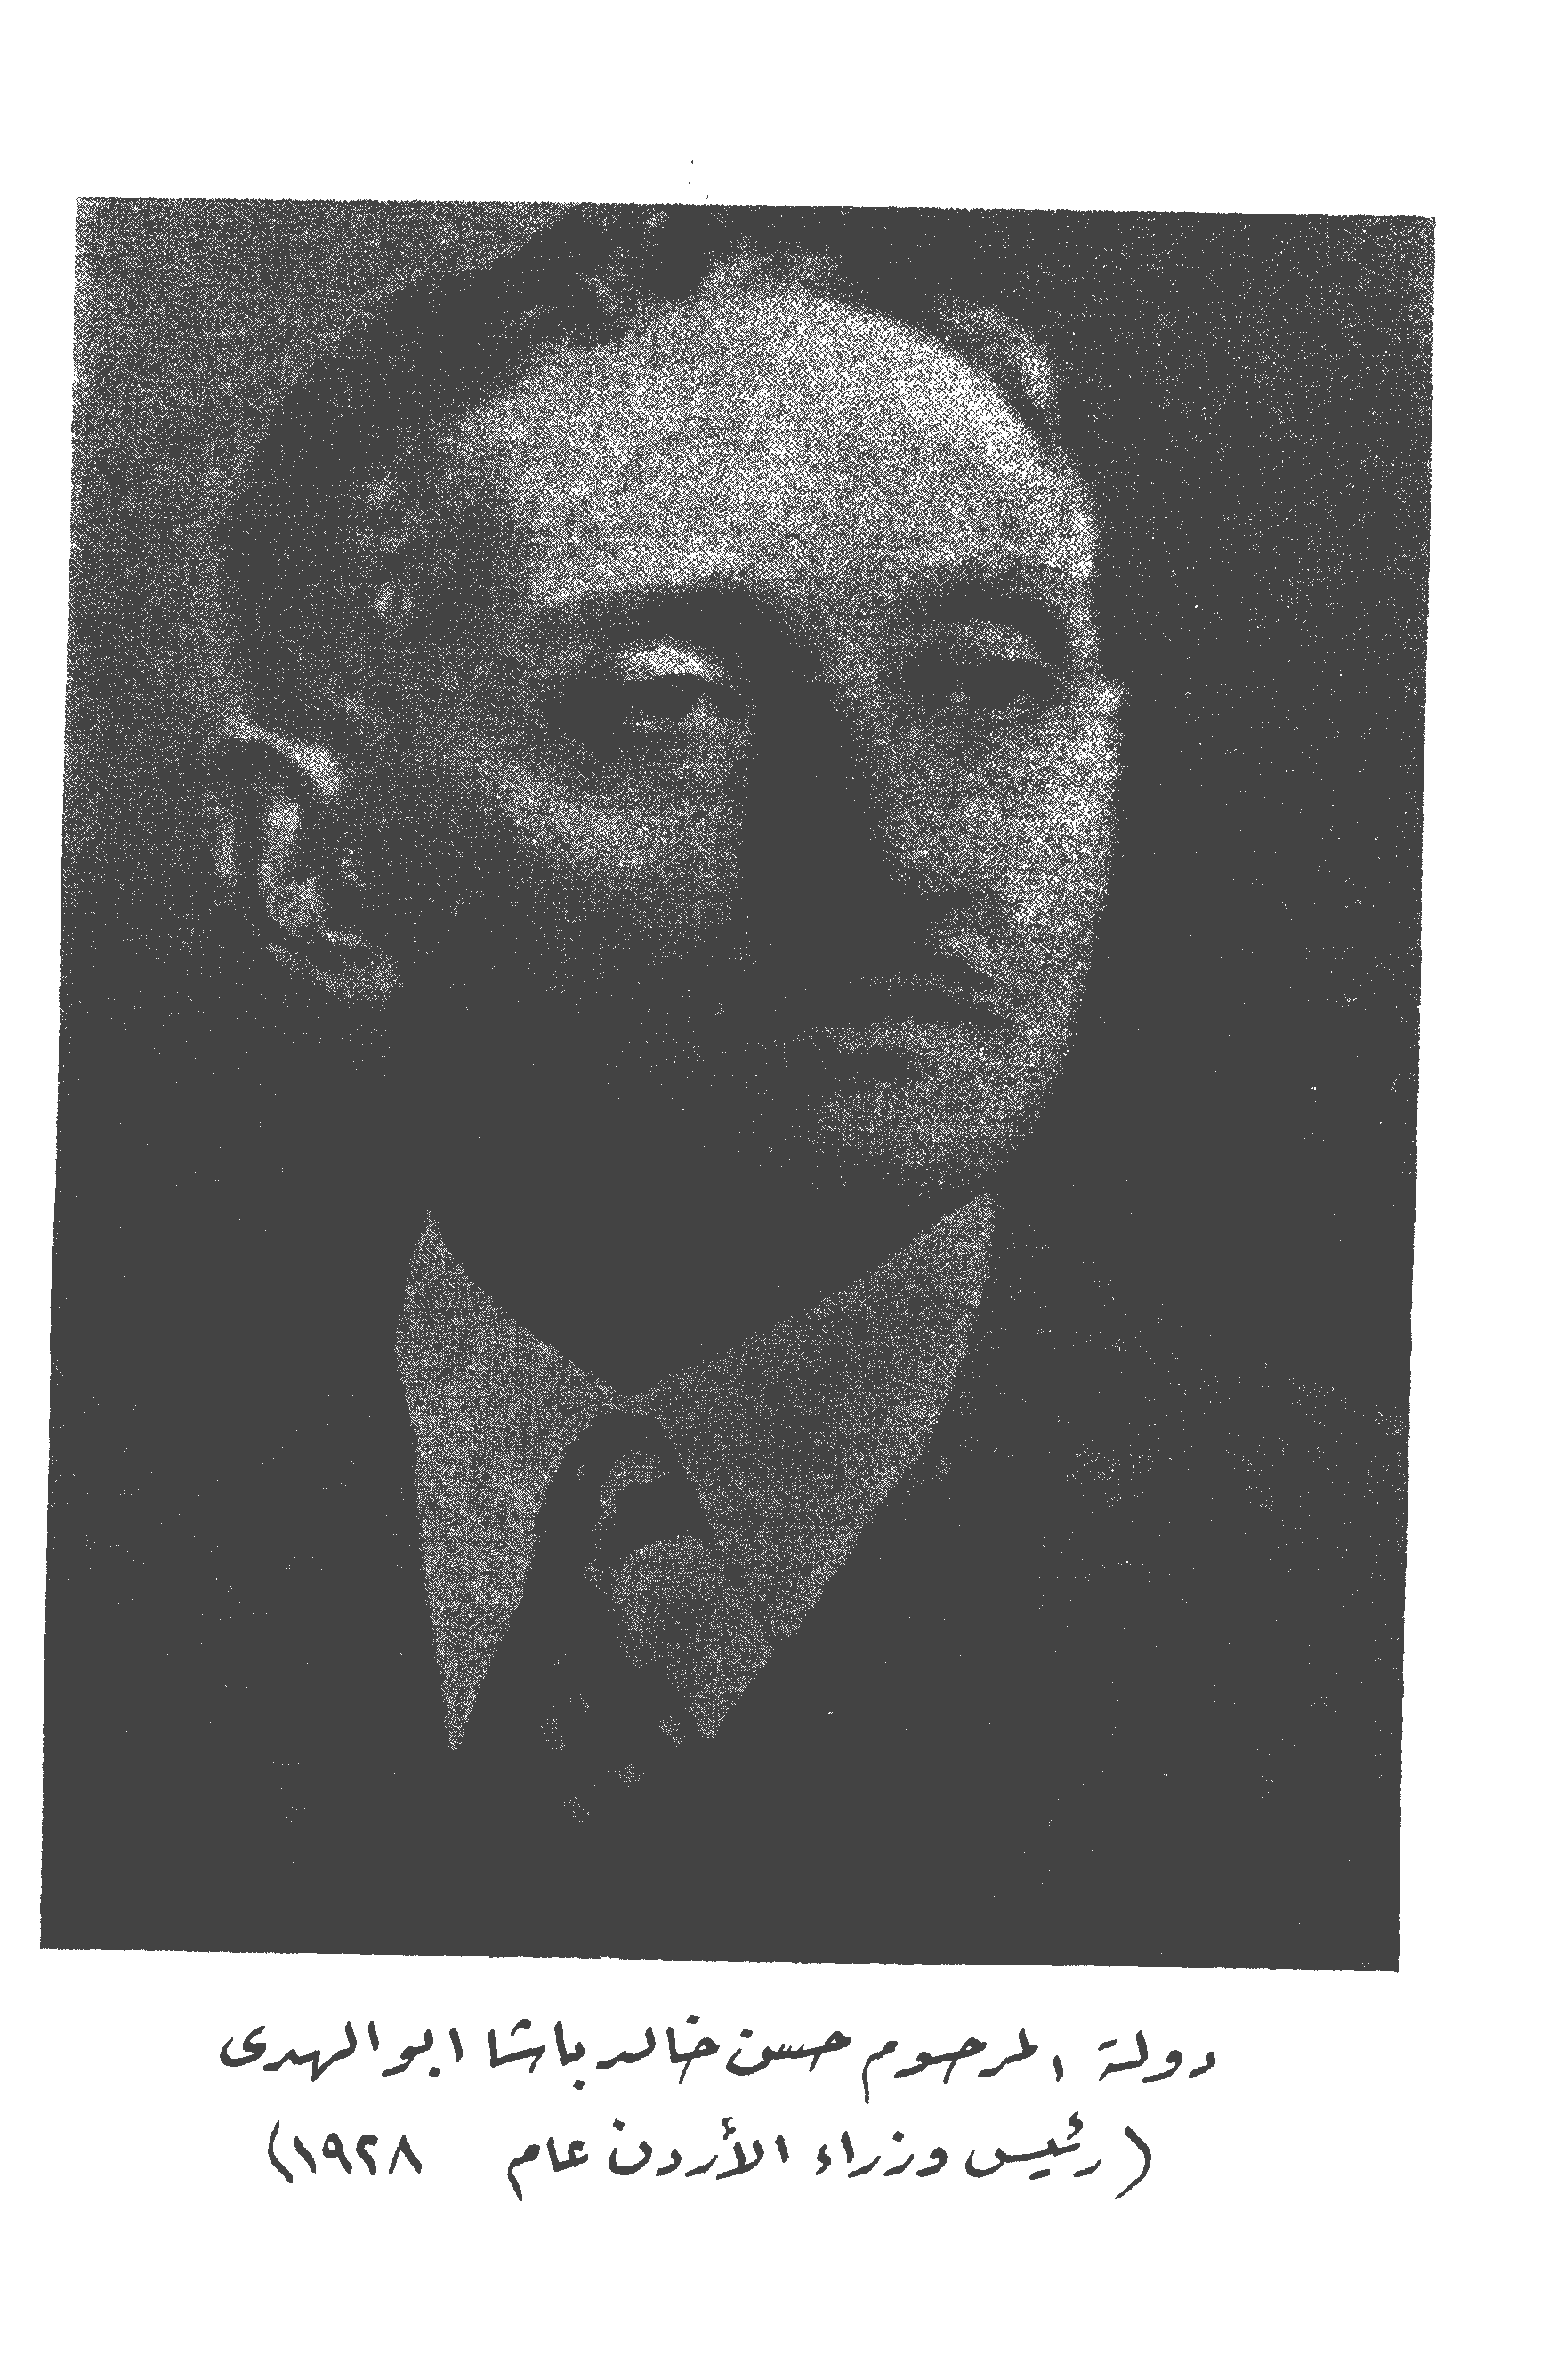 دولة المرحوم حسن خالد باشا ابو الهدى
(رئيس وزراء الأردن عام ١٩٢٨)